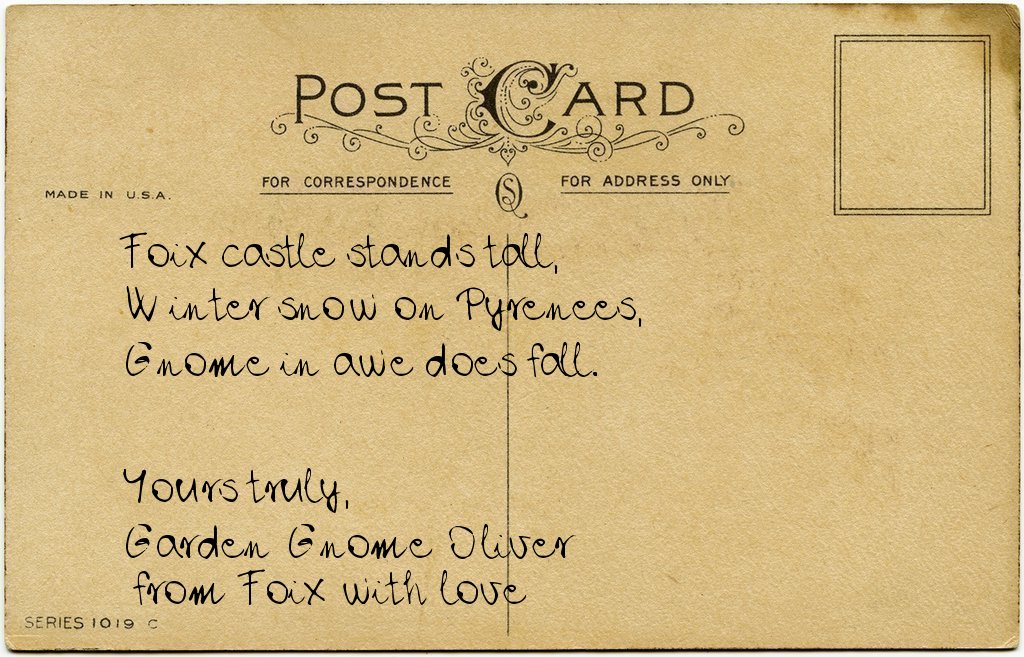 POST CARD
FOR CORRESPONDENCE
FOR ADDRESS ONLY
MADE IN U.S.A.
Foix castle stands tall,
Winter snow on Pyrenees,
Gnome in awe does fall.
Yours truly,
Garden Gnome Oliver
from Foix with love
SERIES 1019 C